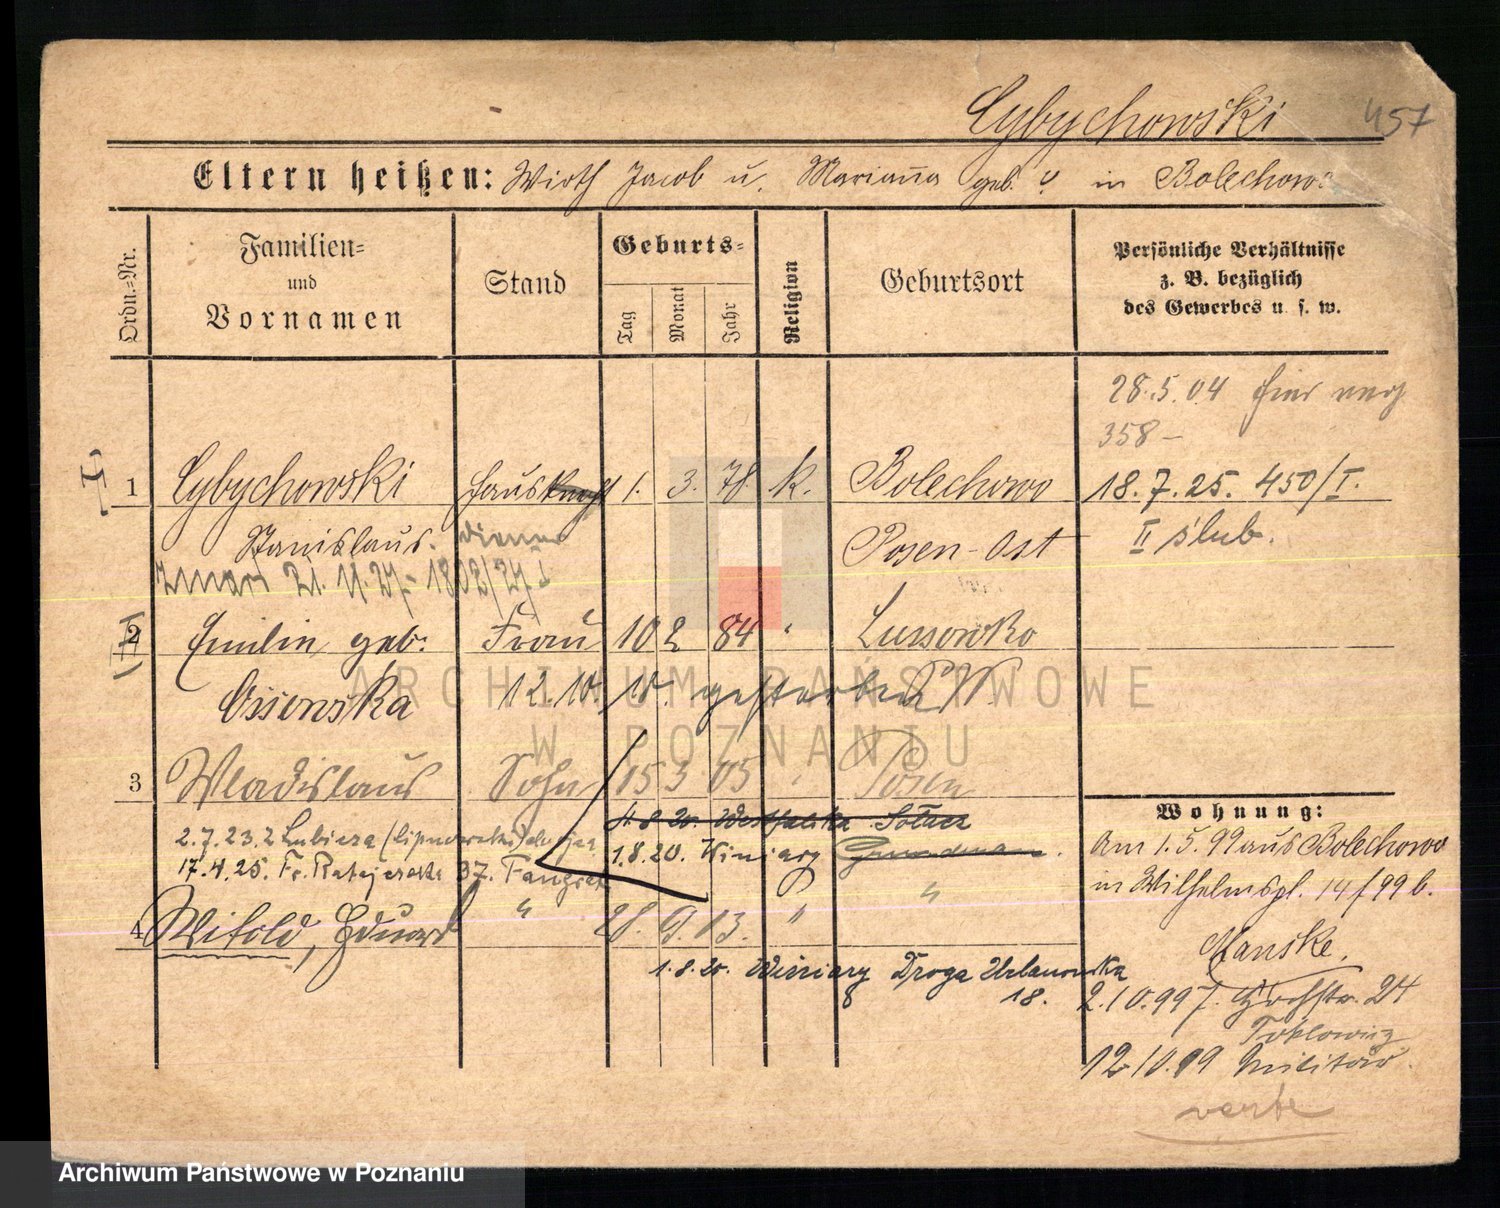 Cybychowski 457
Eltern heißen: Wirth Jacob u. Marianna geb. ? in Bolechowo
Ordn.-Nr.
Familien-
und
Vornamen
Stand
Geburts-
Tag
Monat
Jahr
Religion
Geburtsort
Persönliche Verhältnisse
z. B. bezüglich
des Gewerbes u. s. w.
28.5.04
358 –
I 1 Cybychowski Hausknecht 1. 3. 78 k. Bolechowo 18.7.25. 450/I.
Stanislaus. diener Posen-Ost II ślub.
21.
II 2 Emilie geb. Frau 10 2 84 " Lussowko
Ossowska 12.10. gestorben
3 Wladislaus Sohn 15 3 05 " Posen
4.8.20.
2.7.23. 1.8.20. Winiary
17.4.25. Fr. Ratajczaka 37.
4 Witold, Eduard " 28. 9. 13. " "
1.8.20. Winiary Droga Urbanowska
18.
Wohnung:
Am 1.5.99 aus Bolechowo
in Wilhelmspl. 14/99 b.
Manske.
2.10.99 24
12/10.99 Militär.
verte
ARCHIWUM PAŃSTWOWE
W POZNANIU
Archiwum Państwowe w Poznaniu